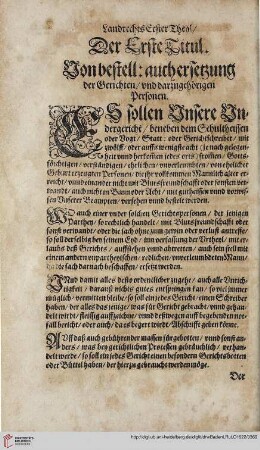 Landrechts Erster Theyl/
Der Erste Titul.
Von bestell: auch ersetzung
der Gerichten/ vnd darzugehörigen
Personen.
ES sollen Vnsere Vn-
dergericht/ beneben dem Schultheissen
oder Vogt/ Statt: oder Gerichtschreiber/ mit
zwölff/ oder auffs wenigst acht/ je nach gelegen-
heit vnd herkom̃en jedes orts/ frommen/ Gotts-
förchtigen/ verständigen/ ehrlichen/ vnverleumbten/ von ehelicher
Geburt erzeugten Personen/ die jhr vollkommen Mannlich alter er-
reicht/ vnd einander nicht mit Blutsfreundschafft oder sonsten ver-
wandt/ auch nicht im Bann oder Acht/
Vnserer Beampten/ versehen vnd besetzt werden.
WO auch einer vnder solchen Gerichtspersonen/ der jenigen
Partheyen/ so rechtlich handelt/ mit Blutsfreundschafft oder
sonst verwandt/ oder die sach ohne zum gewin oder verlust antreffe/
so soll derselbig bey seinem Eyd/ in verfassung der Vrtheyl/ vnder-
lauffs deß Gerichts/ auffstehen vnd abtretten/ auch sein stell mit
einem andern vnpartheyischen/ redlichen/ vnverleumbdten Mann/
die sach darnach beschaffen/ ersetzt werden.
VNd damit alles desto ordenlicher zugehe/ auch alle Vnrich-
tigkeit/ darauß nichts guts entspringen kan/ so viel immer
müglich/ vermitten bleibe/ so soll ein jedes Gericht/ einen Schreiber
haben/ der alles das jenige/ was für Gericht gebracht/ vnd gehan-
delt würde/ fleissig auffzeichne/ vnd deßwegen auff begebenden
fall bericht/ oder auch/ da es begert wirdt/ Abschrifft geben könne.
AVff daß auch gebührender massen fürgebotten/ vnd sonst an-
ders/ was bey gerichtlichen Processen gebräuchlich/ verhan-
delt werde/ so soll ein jedes Gericht einen besondern Gerichtsbotten
oder Büttel haben/ der hierzu gebraucht werden möge.
Der
UNIVERSITÄTS-
BIBLIOTHEK
HEIDELBERG